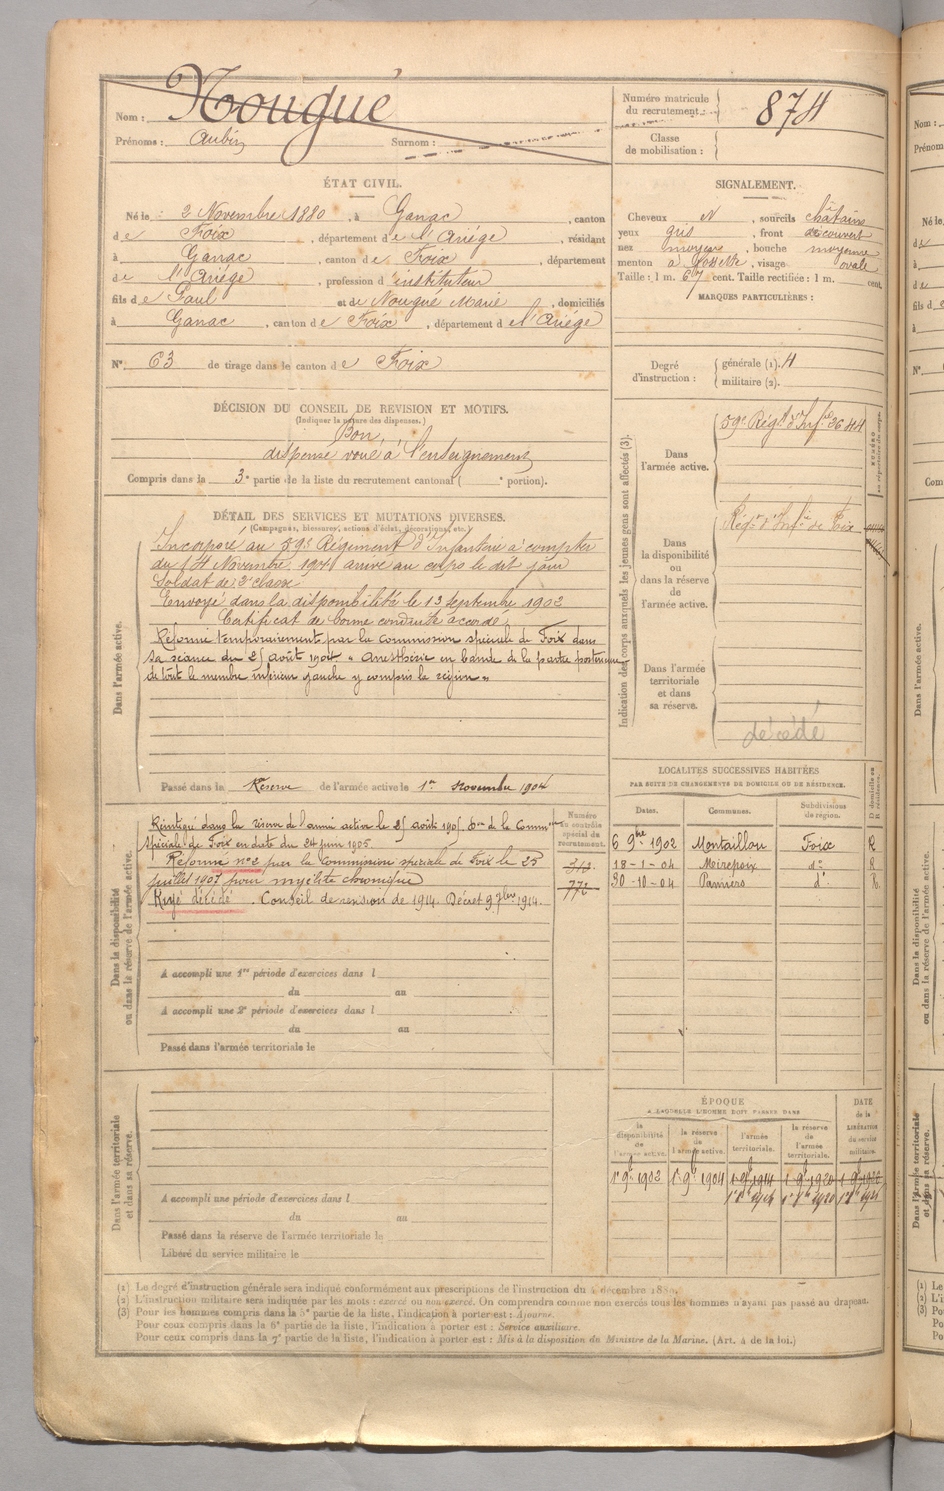 Nom : Nougué
Prénoms : Aubin Surnom :
Numéro matricule du recrutement 874
Classe de mobilisation :
ÉTAT CIVIL.
Né le : 2 Novembre 1880, à Ganac, canton
de Foix, département de l'Ariége, résidant
à Ganac, canton de Foix, département
de l'Ariége, profession d'instituteur
fils de Paul et de Nougué Marie, domiciliés
à Ganac, canton de Foix, département de l'Ariége
N° 63 de tirage dans le canton de Foix
SIGNALEMENT.
Cheveux N, sourcils châtains
yeux gris, front découvert
nez moyen, bouche moyenne
menton à fossette, visage ovale
Taille : 1 m. 67 cent. Taille rectifiée : 1 m. cent.
MARQUES PARTICULIÈRES :
Degré d'instruction : générale (1). 4
militaire (2).
DÉCISION DU CONSEIL DE REVISION ET MOTIFS.
(Indiquer la nature des dispenses.)
Bon,
dispensé voué à l'enseignement
Compris dans la 3e partie de la liste du recrutement cantonal ( e portion).
DÉTAIL DES SERVICES ET MUTATIONS DIVERSES.
(Campagnes, blessures, actions d'éclat, décorations, etc.)
Dans l'armée active.
Incorporé au 59e Régiment d'Infanterie à compter
du 14 Novembre 1901 arrivé au corps le dit jour
Soldat de 2e classe
Envoyé dans la disponibilité le 13 Septembre 1902
Certificat de bonne conduite accordé.
Réformé temporairement par la commission spéciale de Foix dans
sa séance du 25 août 1904 « Anesthésie en bande de la partie postérieure
de tout le membre inférieur gauche y compris la région »
Passé dans la Réserve de l'armée active le 1er Novembre 1904
Indication des corps auxquels les jeunes gens sont affectés (3).
Dans l'armée active.
59e Régt d'Infie 3644
Dans la disponibilité ou dans la réserve de l'armée active.
Régt d'Infie de Foix
Dans l'armée territoriale et dans sa réserve.
décédé
Dans la disponibilité ou dans la réserve de l'armée active.
Réintégré dans la réserve de l'armée active le 25 août 1905 Don de la Commion
spéciale de Foix en date du 24 juin 1905
Réformé n°2 par la Commission spéciale de Foix le 25
juillet 1907 pour myélite chronique
Rayé décédé. Conseil de revision de 1914. Décret 9 7bre 1914.
Numéro au contrôle spécial du recrutement.
313
772
A accompli une 1re période d'exercices dans l
du au
A accompli une 2e période d'exercices dans l
du au
Passé dans l'armée territoriale le
LOCALITES SUCCESSIVES HABITÉES
PAR SUITE DE CHANGEMENTS DE DOMICILE OU DE RÉSIDENCE.
Dates. Communes. Subdivisions de région.
6 9bre 1902 Montaillou Foix R
18-1-04 Mirepoix do R
30-10-04 Pamiers do R.
Dans l'armée territoriale et dans sa réserve.
A accompli une période d'exercices dans l
du au
Passé dans la réserve de l'armée territoriale le
Libéré du service militaire le
ÉPOQUE
A LAQUELLE L'HOMME DOIT PASSER DANS
la disponibilité de l'armée active. la réserve de l'armée active. l'armée territoriale. la réserve de l'armée territoriale.
DATE de la LIBÉRATION du service militaire.
1er 9bre 1902 1er 9bre 1904 1er 9bre 1914 1er 9bre 1920
(1) Le degré d'instruction générale sera indiqué conformément aux prescriptions de l'instruction du 4 décembre 1889.
(2) L'instruction militaire sera indiquée par les mots : exercé ou non exercé. On comprendra comme non exercés tous les hommes n'ayant pas passé au drapeau.
(3) Pour les hommes compris dans la 5e partie de la liste, l'indication à porter est : Ajourné.
Pour ceux compris dans la 6e partie de la liste, l'indication à porter est : Service auxiliaire.
Pour ceux compris dans la 7e partie de la liste, l'indication à porter est : Mis à la disposition du Ministre de la Marine. (Art. 4 de la loi.)